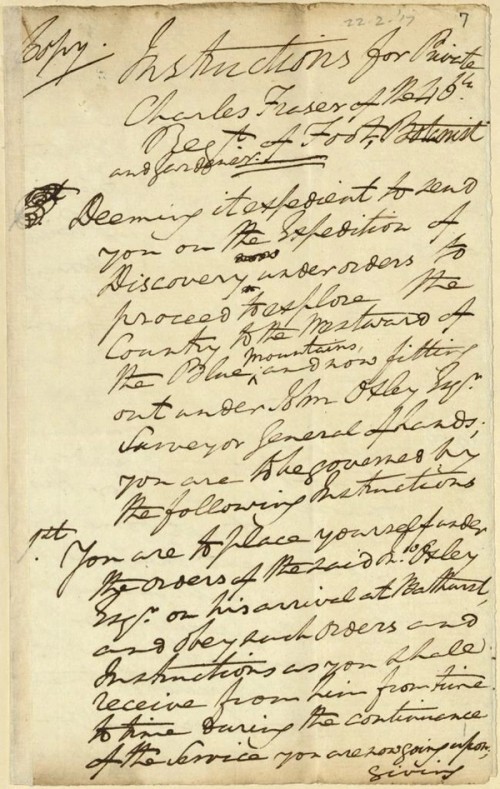 22.2.17 7
Copy.
Instructions for Private
Charles Fraser of the 46th
Regt. of Foot, Botanist
and Gardener.
Deeming it expedient to send
you on the Expedition of
Discovery under orders to
proceed to explore the
Country to the Westward of
the Blue Mountains, and now fitting
out under John Oxley Esqr.
Surveyor General of Lands;
you are to be governed by
the following Instructions
1st. You are to place yourself under
the orders of the said Oxley
Esqr. on his arrival at Bathurst,
and obey such Orders and
Instructions as you shall
receive from him from time
to time during the continuance
of the Service you are now going upon,
giving